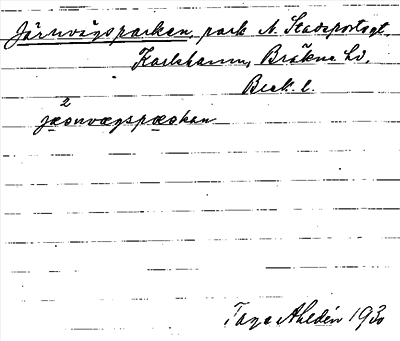 Järnvägsparken, park N. Stadsportsgt,
Karlshamn, Bräkne hd,
Blek. l.
2
jæơnvægspæơkan
Tage Ahldén 1930